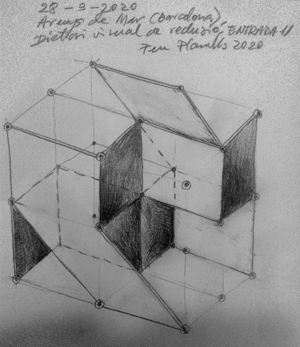 28-3-2020
Arenys de Mar (Barcelona)
Diettari visual de reclusió ENTRADA 11
Feu Planells 2020